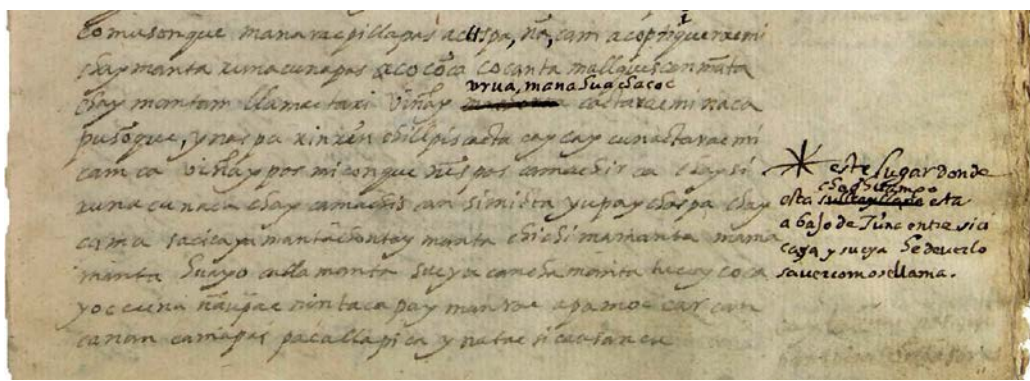 comusonque manarac pillapas acuspa, ña, cam acoptiqueracmi
chaymanta runacunapas acocõca cocanta mallquiscanmãta
chaymantam llamactaxi viñay
vrua, mana huachacoc
cactaracmi ñaca
pusõque, ynaspa rinrẽn chillpiscacta caycay cunactaracmi
camca viñaypos miconque ñispas camachirca chaysi
runacunaca chay camachiscan simicta yupaycharpa chay
cama sacicayamanta chontay manta chichimamanta mama
manta huayo callamanta sucyacancha manta tucoy coca
yoccuna ñaupacnintaca paymanrac apamoc carcan
canan camapas pacallapica ynatac si causancu
este lugar donde
chaquitampo
esta esta
abajo de Tunc entre sici
caya y sucya he de verlo
saver como se llama.